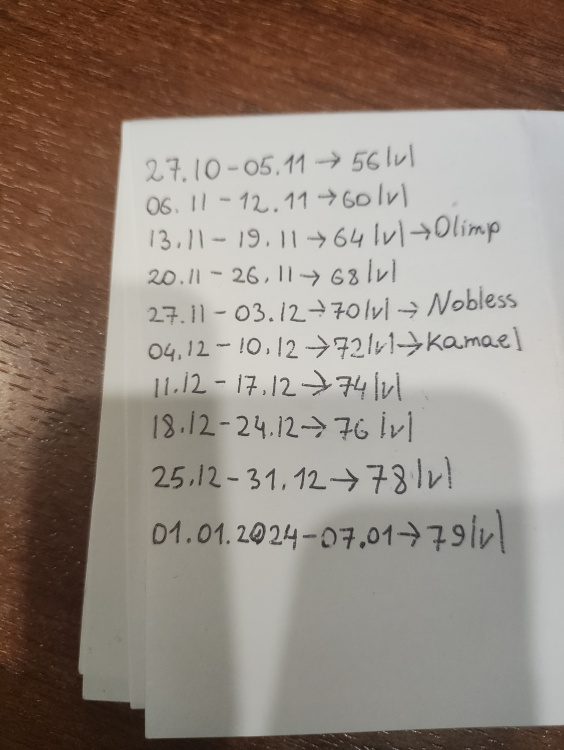 27.10-05.11 → 56 lvl
06.11-12.11 → 60 lvl
13.11-19.11 → 64 lvl → Olimp
20.11-26.11 → 68 lvl
27.11-03.12 → 70 lvl → Nobless
04.12-10.12 → 72 lvl → Kamael
11.12-17.12 → 74 lvl
18.12-24.12 → 76 lvl
25.12-31.12 → 78 lvl
01.01.2024-07.01 → 79 lvl